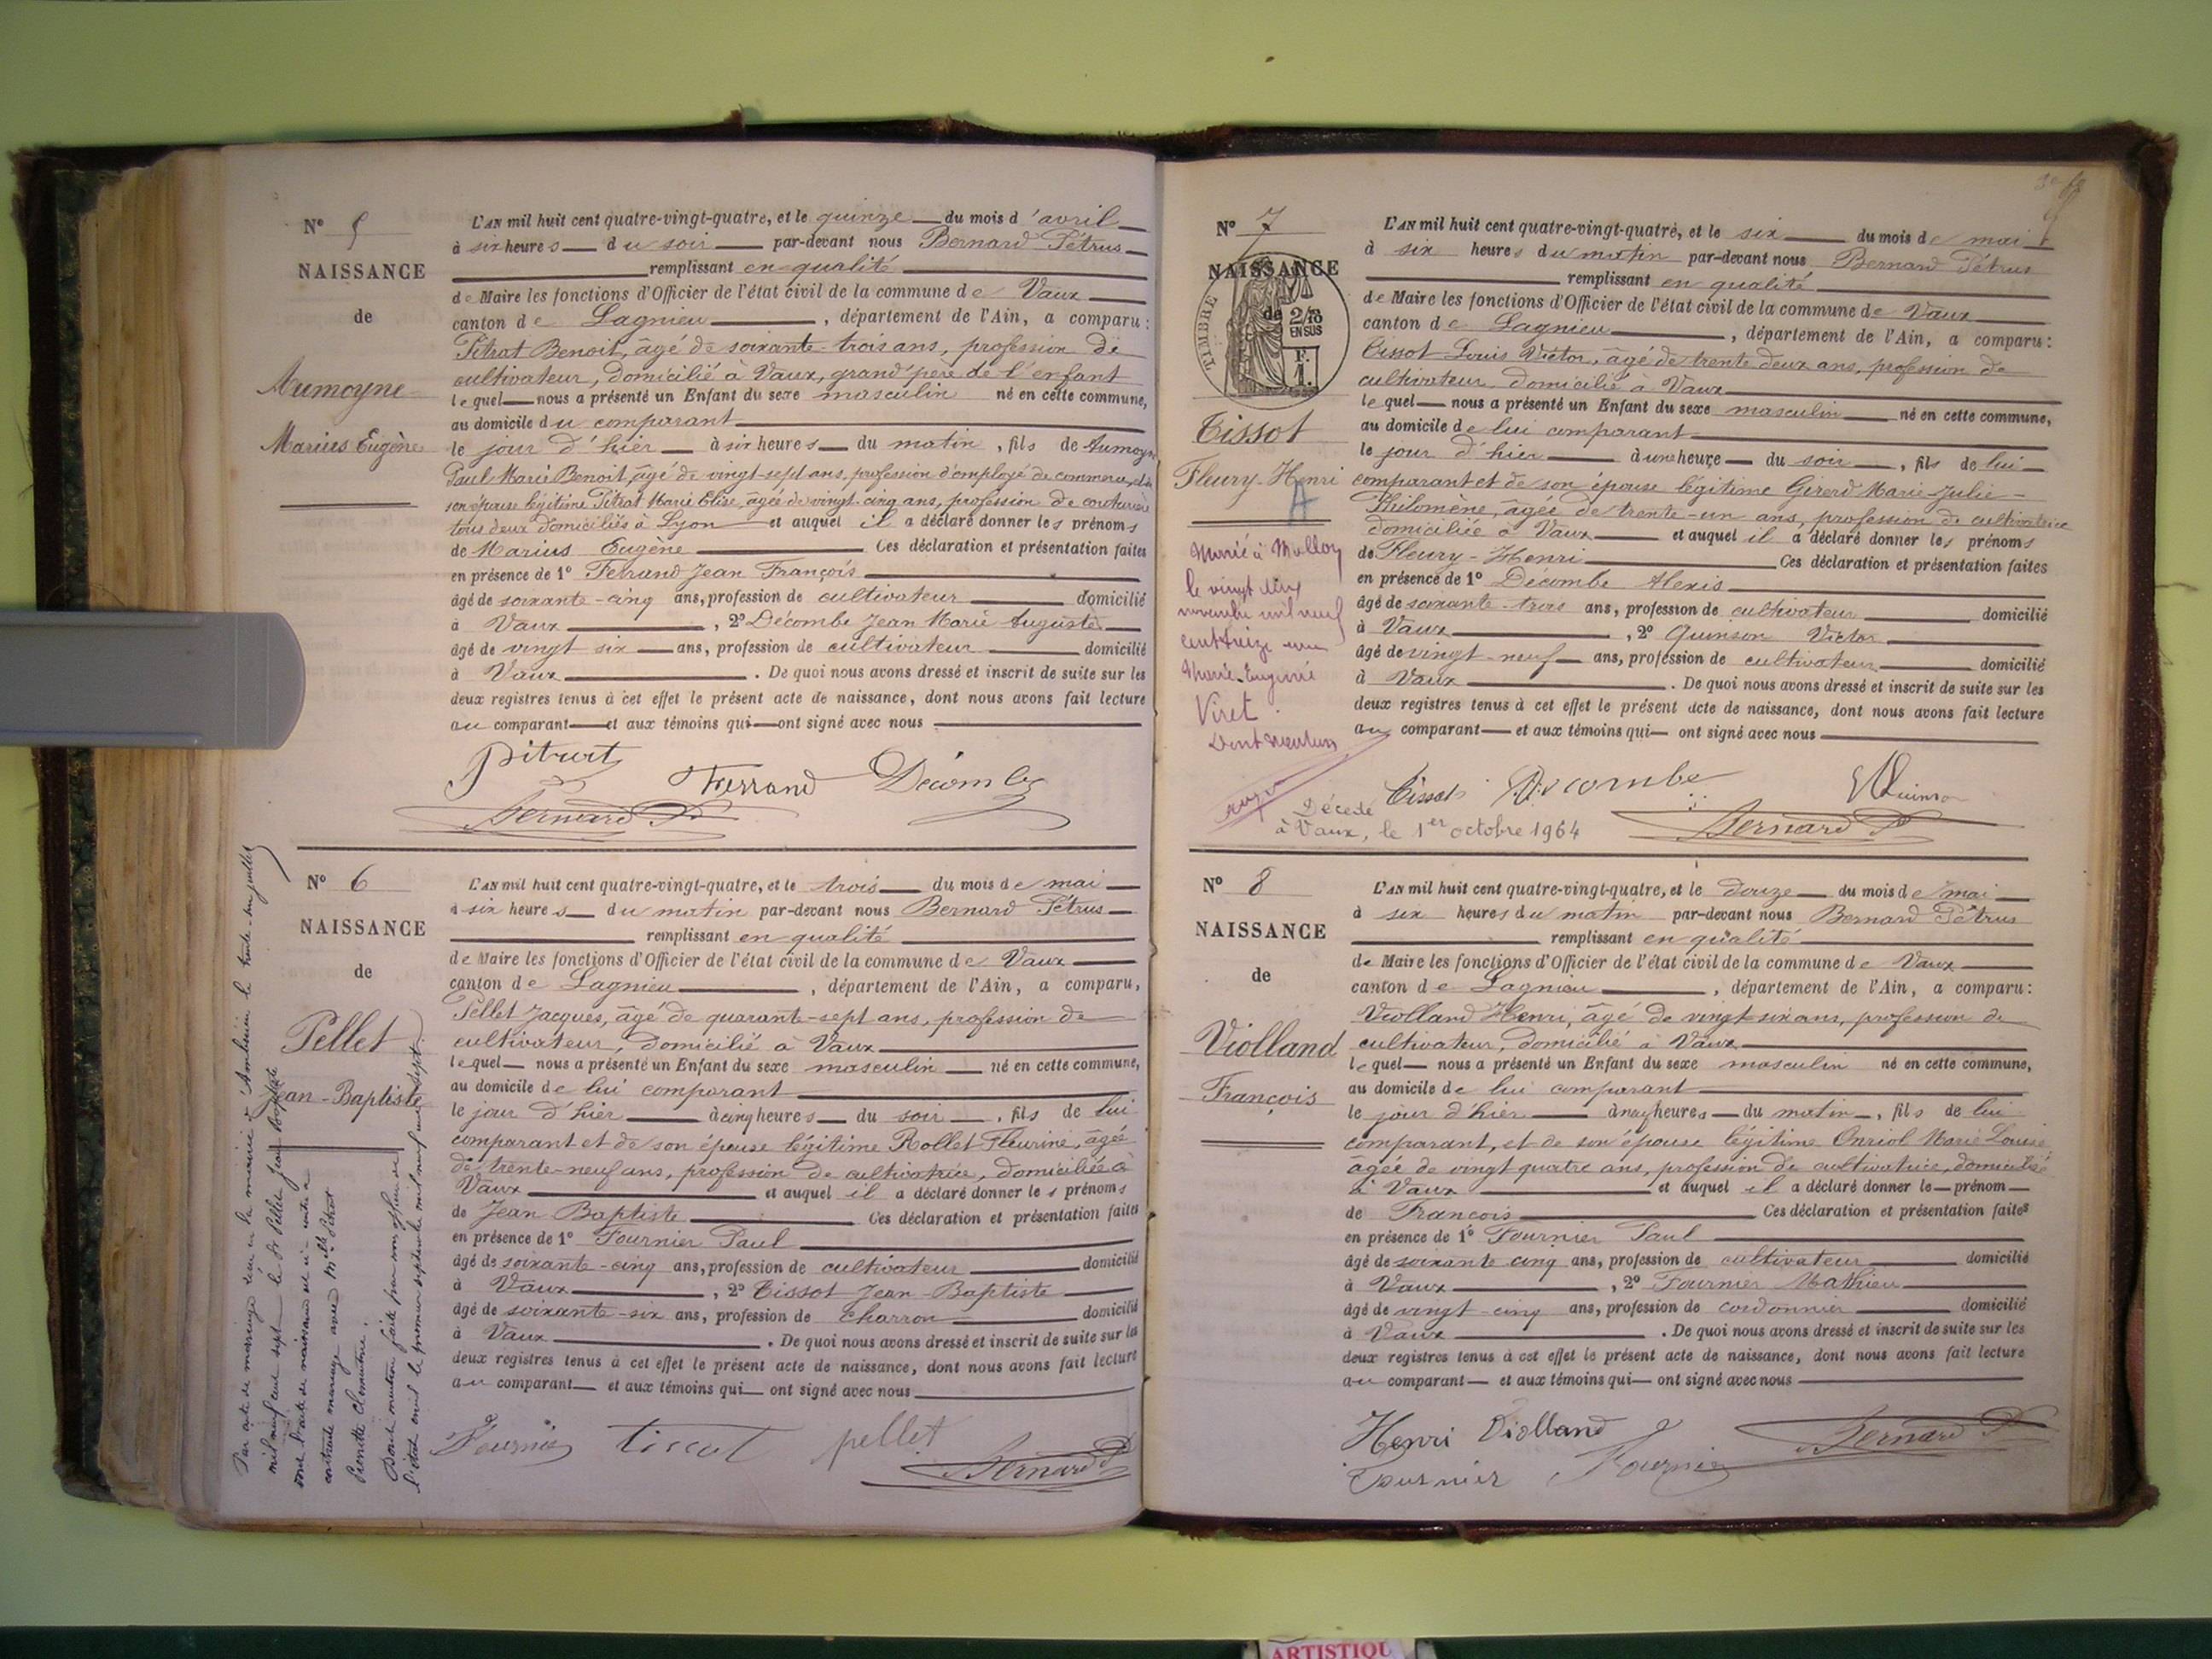 Nº 5
NAISSANCE
de
Aumoyne
Marius Eugène
L'AN mil huit cent quatre-vingt-quatre, et le quinze du mois d'avril
à six heures du soir par-devant nous Bernard Pétrus
remplissant en qualité
de Maire les fonctions d'Officier de l'état civil de la commune de Vaux
canton de Lagnieu, département de l'Ain, a comparu:
Pitrat Benoit, âgé de soixante-trois ans, profession de
cultivateur, domicilié à Vaux, grand'père de l'enfant
lequel nous a présenté un Enfant du sexe masculin né en cette commune,
au domicile du comparant
le jour d'hier à six heures du matin, fils de Aumoyne
Paul Marie Benoit, âgé de vingt-sept ans, profession d'employé de commerce, et de
son épouse légitime Pitrat Marie Elise, âgée de vingt-cinq ans, profession de couturière
tous deux domiciliés à Lyon et auquel il a déclaré donner les prénoms
de Marius Eugène Ces déclaration et présentation faites
en présence de 1º Ferrand Jean François
âgé de soixante-cinq ans, profession de cultivateur domicilié
à Vaux, 2º Décombe Jean Marie Auguste
âgé de vingt six ans, profession de cultivateur domicilié
à Vaux. De quoi nous avons dressé et inscrit de suite sur les
deux registres tenus à cet effet le présent acte de naissance, dont nous avons fait lecture
au comparant et aux témoins qui ont signé avec nous
Pitrat
Ferrand Décombe
Bernard P
Nº 6
NAISSANCE
de
Pellet
Jean-Baptiste
Par acte de mariage reçu en la mairie d'Ambérieu le trente-un juillet
mil neuf cent sept le Sr Pellet Jean Baptiste
dont l'acte de naissance est ci-contre a
contracté mariage avec Mlle Pitrat
Pierrette Clémentine.
Dont mention faite par nous officier de
l'état civil le premier septembre mil neuf cent sept.
L'AN mil huit cent quatre-vingt-quatre, et le trois du mois de mai
à six heures du matin par-devant nous Bernard Pétrus
remplissant en qualité
de Maire les fonctions d'Officier de l'état civil de la commune de Vaux
canton de Lagnieu, département de l'Ain, a comparu,
Pellet Jacques, âgé de quarante-sept ans, profession de
cultivateur, domicilié à Vaux
lequel nous a présenté un Enfant du sexe masculin né en cette commune,
au domicile de lui comparant
le jour d'hier à cinq heures du soir, fils de lui
comparant et de son épouse légitime Rollet Fleurine, âgée
de trente-neuf ans, profession de cultivatrice, domiciliée à
Vaux et auquel il a déclaré donner les prénoms
de Jean Baptiste Ces déclaration et présentation faites
en présence de 1º Fournier Paul
âgé de soixante-cinq ans, profession de cultivateur domicilié
à Vaux, 2º Tissot Jean-Baptiste
âgé de soixante-six ans, profession de charron domicilié
à Vaux. De quoi nous avons dressé et inscrit de suite sur les
deux registres tenus à cet effet le présent acte de naissance, dont nous avons fait lecture
au comparant et aux témoins qui ont signé avec nous
Fournier tissot pellet
Bernard P
Nº 7
NAISSANCE
de
TIMBRE
2/10
EN SUS
F.
1.
Tissot
Fleury-Henri
A
Marié à
le vingt deux
novembre mil neuf
cent treize avec
Marie Eugénie
Viret.
Dont mention
L'AN mil huit cent quatre-vingt-quatre, et le six du mois de mai
à six heures du matin par-devant nous Bernard Pétrus
remplissant en qualité
de Maire les fonctions d'Officier de l'état civil de la commune de Vaux
canton de Lagnieu, département de l'Ain, a comparu:
Tissot Louis Victor, âgé de trente deux ans, profession de
cultivateur domicilié à Vaux
lequel nous a présenté un Enfant du sexe masculin né en cette commune,
au domicile de lui comparant
le jour d'hier à une heure du soir, fils de lui
comparant et de son épouse légitime Girerd Marie-Julie-
Philomène, âgée de trente-un ans, profession de cultivatrice
domiciliée à Vaux et auquel il a déclaré donner les prénoms
de Fleury-Henri Ces déclaration et présentation faites
en présence de 1º Décombe Alexis
âgé de soixante-trois ans, profession de cultivateur domicilié
à Vaux, 2º Quinson Victor
âgé de vingt-neuf ans, profession de cultivateur domicilié
à Vaux. De quoi nous avons dressé et inscrit de suite sur les
deux registres tenus à cet effet le présent acte de naissance, dont nous avons fait lecture
au comparant et aux témoins qui ont signé avec nous
Tissot Décombe Quinson
Bernard P
Décédé
à Vaux, le 1er octobre 1964
Nº 8
NAISSANCE
de
Violland
François
L'AN mil huit cent quatre-vingt-quatre, et le douze du mois de mai
à six heures du matin par-devant nous Bernard Pétrus
remplissant en qualité
de Maire les fonctions d'Officier de l'état civil de la commune de Vaux
canton de Lagnieu, département de l'Ain, a comparu:
Violland Henri, âgé de vingt-six ans, profession de
cultivateur, domicilié à Vaux
lequel nous a présenté un Enfant du sexe masculin né en cette commune,
au domicile de lui comparant
le jour d'hier à neuf heures du matin, fils de lui
comparant, et de son épouse légitime Onriol Marie Louise
âgée de vingt quatre ans, profession de cultivatrice, domiciliée
à Vaux et auquel il a déclaré donner le prénom
de François Ces déclaration et présentation faites
en présence de 1º Fournier Paul
âgé de soixante cinq ans, profession de cultivateur domicilié
à Vaux, 2º Fournier Mathieu
âgé de vingt-cinq ans, profession de cordonnier domicilié
à Vaux. De quoi nous avons dressé et inscrit de suite sur les
deux registres tenus à cet effet le présent acte de naissance, dont nous avons fait lecture
au comparant et aux témoins qui ont signé avec nous
Henri Violland
Bernard P
Fournier Fournier
ARTISTIQU